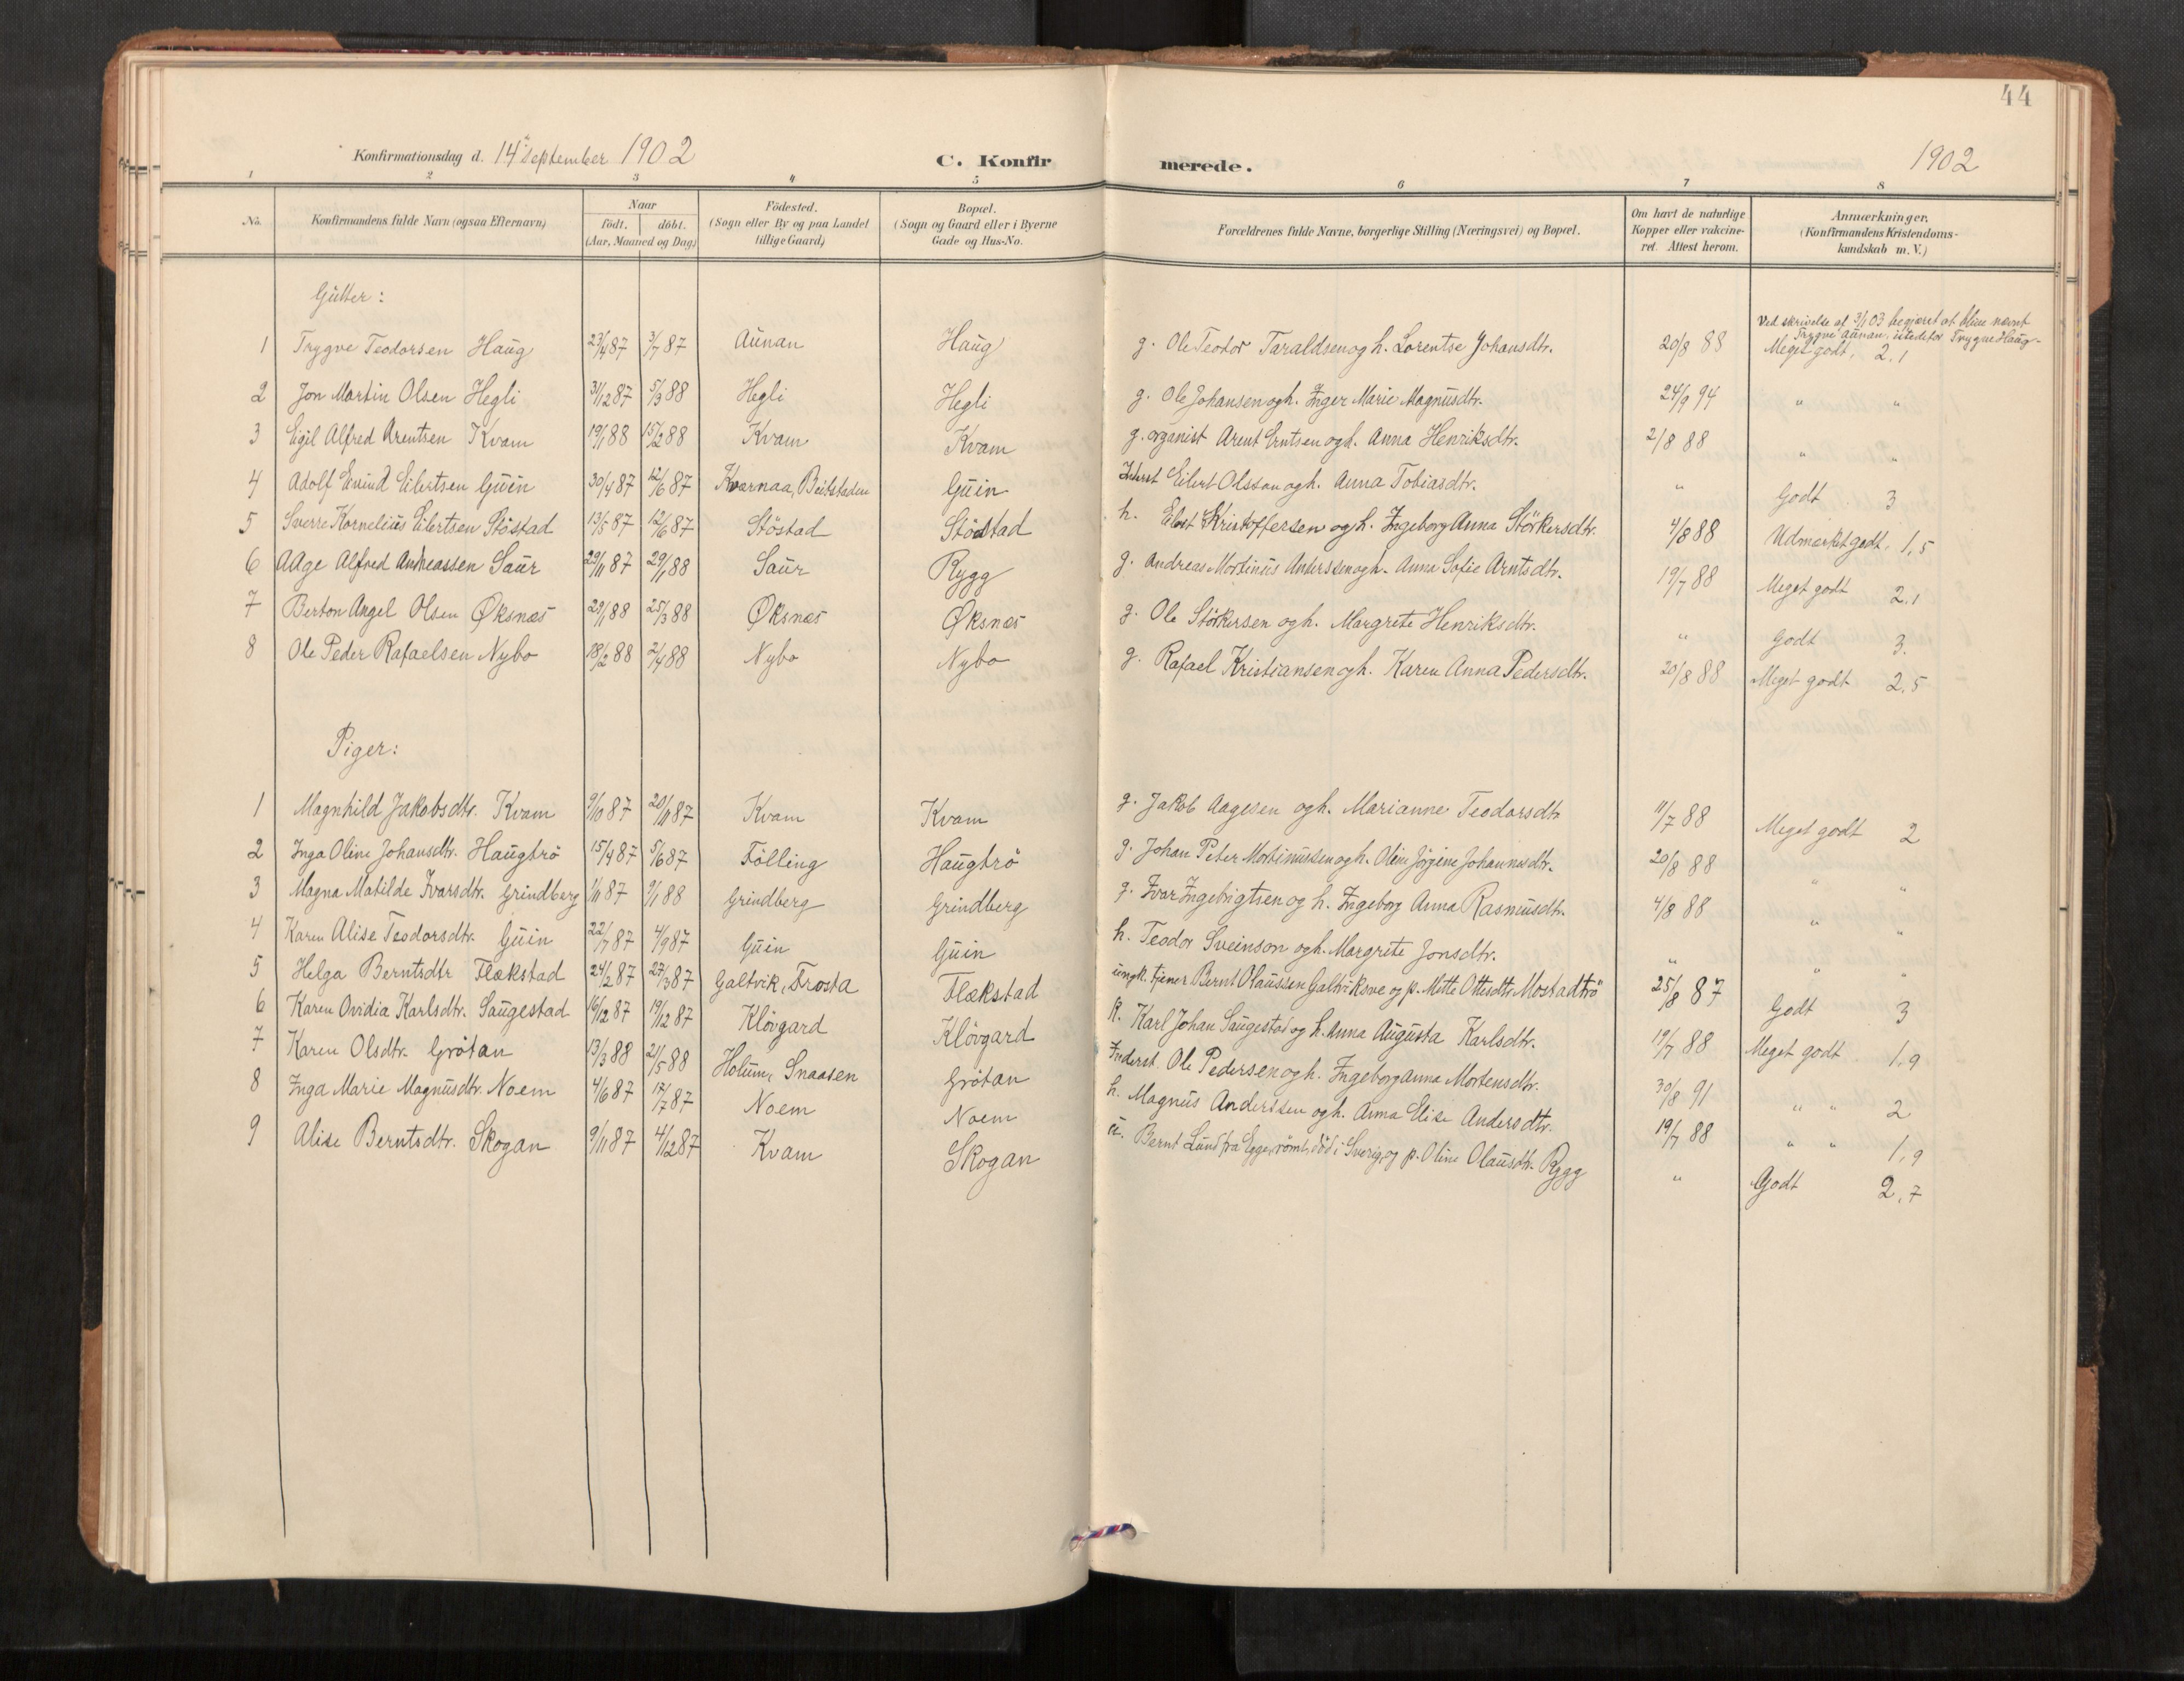 44
Konfirmationsdag d. 14 September 1902 C. Konfirmerede. 1902
1 2 3 4 5 6 7 8
No. Konfirmandens fulde Navn (ogsaa Efternavn) Naar født. døbt. (Aar, Maaned og Dag) Födested. (Sogn eller By og paa Landet tillige Gaard) Bopæl. (Sogn og Gaard eller i Byerne Gade og Hus-No. Forældrenes fulde Navne, borgerlige Stilling (Næringsvei) og Bopæl. Om havt de naturlige Kopper eller vakcineret. Attest herom. Anmærkninger. (Konfirmandens Kristendomskundskab m. V.)
Gutter:
Ved skrivelse af 3/1 03 begjæret at blive nævnt
Trygve Aunan, istedetfor Trygve Haug.
1 Trygve Teodorsen Haug 23/4 87 3/7 87 Aunan Haug g. Ole Teodor Taraldsen og h. Lorentse Johansdtr. 20/8 88 Meget godt, 2.1
2 Jon Martin Olsen Hegli 31/12 87 5/3 88 Hegli Hegli g. Ole Johansen og h. Inger Marie Magnusdtr. 24/9 94 " "
3 Egil Alfred Arentsen Kvam 19/1 88 15/2 88 Kvam Kvam g. organist Arent Erntsen og h. Anna Henriksdtr. 2/8 88 " "
4 Adolf Eivind Eilertsen Guin 30/4 87 12/6 87 Kvarnaa, Beitstaden Guin Inderst Eilert Olsson og h. Anna Tobiasdtr. " Godt 3
5 Sverre Kornelius Eilertsen Stöstad 13/5 87 12/6 87 Stöstad Stöstad h. Elert Kristoffersen og h. Ingeborg Anna Störkersdtr. 4/8 88 Udmærket godt. 1,5
6 Aage Alfred Andreassen Saur 29/11 87 29/1 88 Saur Rygg g. Andreas Mortinus Anderssen og h. Anna Sofie Arntsdtr. 19/7 88 Meget godt 2,1
7 Berton Angel Olsen Øksnæs 29/1 88 25/3 88 Øksnæs Øksnæs g. Ole Störkersen og h. Margrete Henriksdtr. " Godt 3.
8 Ole Peder Rafaelsen Nybo 18/2 88 2/4 88 Nybo Nybo g. Rafael Kristiansen og h. Karen Anna Pedersdtr. 20/8 88 Meget godt 2,5
Piger:
1 Magnhild Jakobsdtr. Kvam 9/10 87 20/11 87 Kvam Kvam g. Jakob Aagesen og h. Marianne Teodorsdtr 11/7 88 Meget godt 2
2 Inga Oline Johansdtr. Haugtrö 15/4 87 5/6 87 Fölling Haugtrö g. Johan Peter Mortinussen og h. Oline Jörgine Johannesdtr. 20/8 88 " "
3 Magna Matilde Ivarsdtr. Grindberg 1/11 87 9/1 88 Grindberg Grindberg g. Ivar Ingebrigtsen og h. Ingeborg Anna Rasmusdtr. 4/8 88 " "
4 Karen Alise Teodorsdtr. Guin 22/7 87 4/9 87 Guin Guin h. Teodor Sveinson og h. Margrete Jonsdtr. " " "
5 Helga Berntsdtr Flækstad 24/2 87 27/3 87 Galtvik, Frosta Flækstad ungk. tjener Bernt Olaussen Galtviksve og p. Mette Ottesdtr. Mostadtrö 25/8 87 Godt 3
6 Karen Ovidia Karlsdtr. Saugestad 16/12 87 19/12 87 Klövgard Klövgard k. Karl Johan Saugestad og h. Anna Augusta Karlsdtr. 19/7 88 Meget godt 1,9
7 Karen Olsdtr. Grötan 13/3 88 21/5 88 Holum, Snaasen Grötan Inderst. Ole Pedersen og h. Ingeborganna Mortensdtr. 30/8 91 " " 2
8 Inga Marie Magnusdtr. Noem 4/6 87 17/7 87 Noem Noem h. Magnus Anderssen og h. Anna Elise Andersdtr. 19/7 88 " " 1,9
9 Alise Berntsdtr. Skogan 9/11 87 4/12 87 Kvam Skogan u. Bernt Lund fra Egge, römt, död i Sverig, og p. Oline Olausdtr. Rygg " Godt 2,7